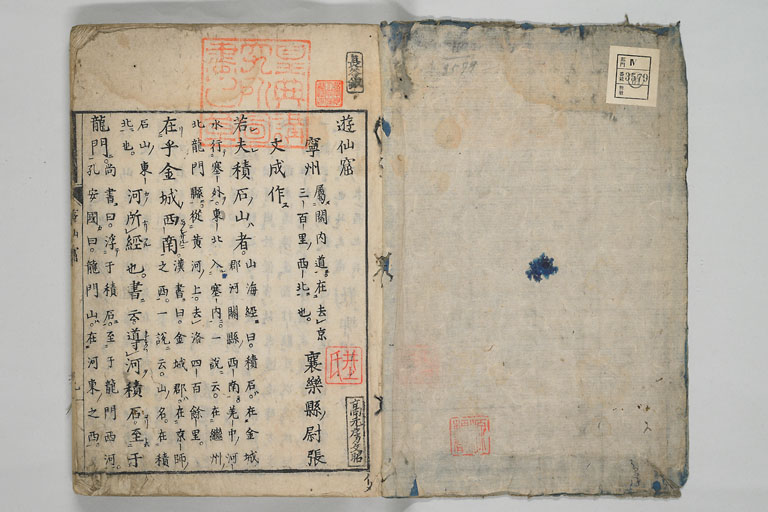 遊仙窟
寧州
屬關内道在去京
三百里西北也
襄樂縣尉張
文成作
若夫積石山者
山海經曰積石在金城
郡河關縣西南羌中河
水行塞外東北入塞内一說云在繼州
北龍門縣從黃河上去洛四百餘里
在乎金城西南
漢書曰金城郡在京師
之西一說云山名在積
石山東
北也
河所經也書云導河積石至于
龍門
尚書曰浮于積石至于龍門西河
孔安國曰龍門山在河東之西
IV
3579